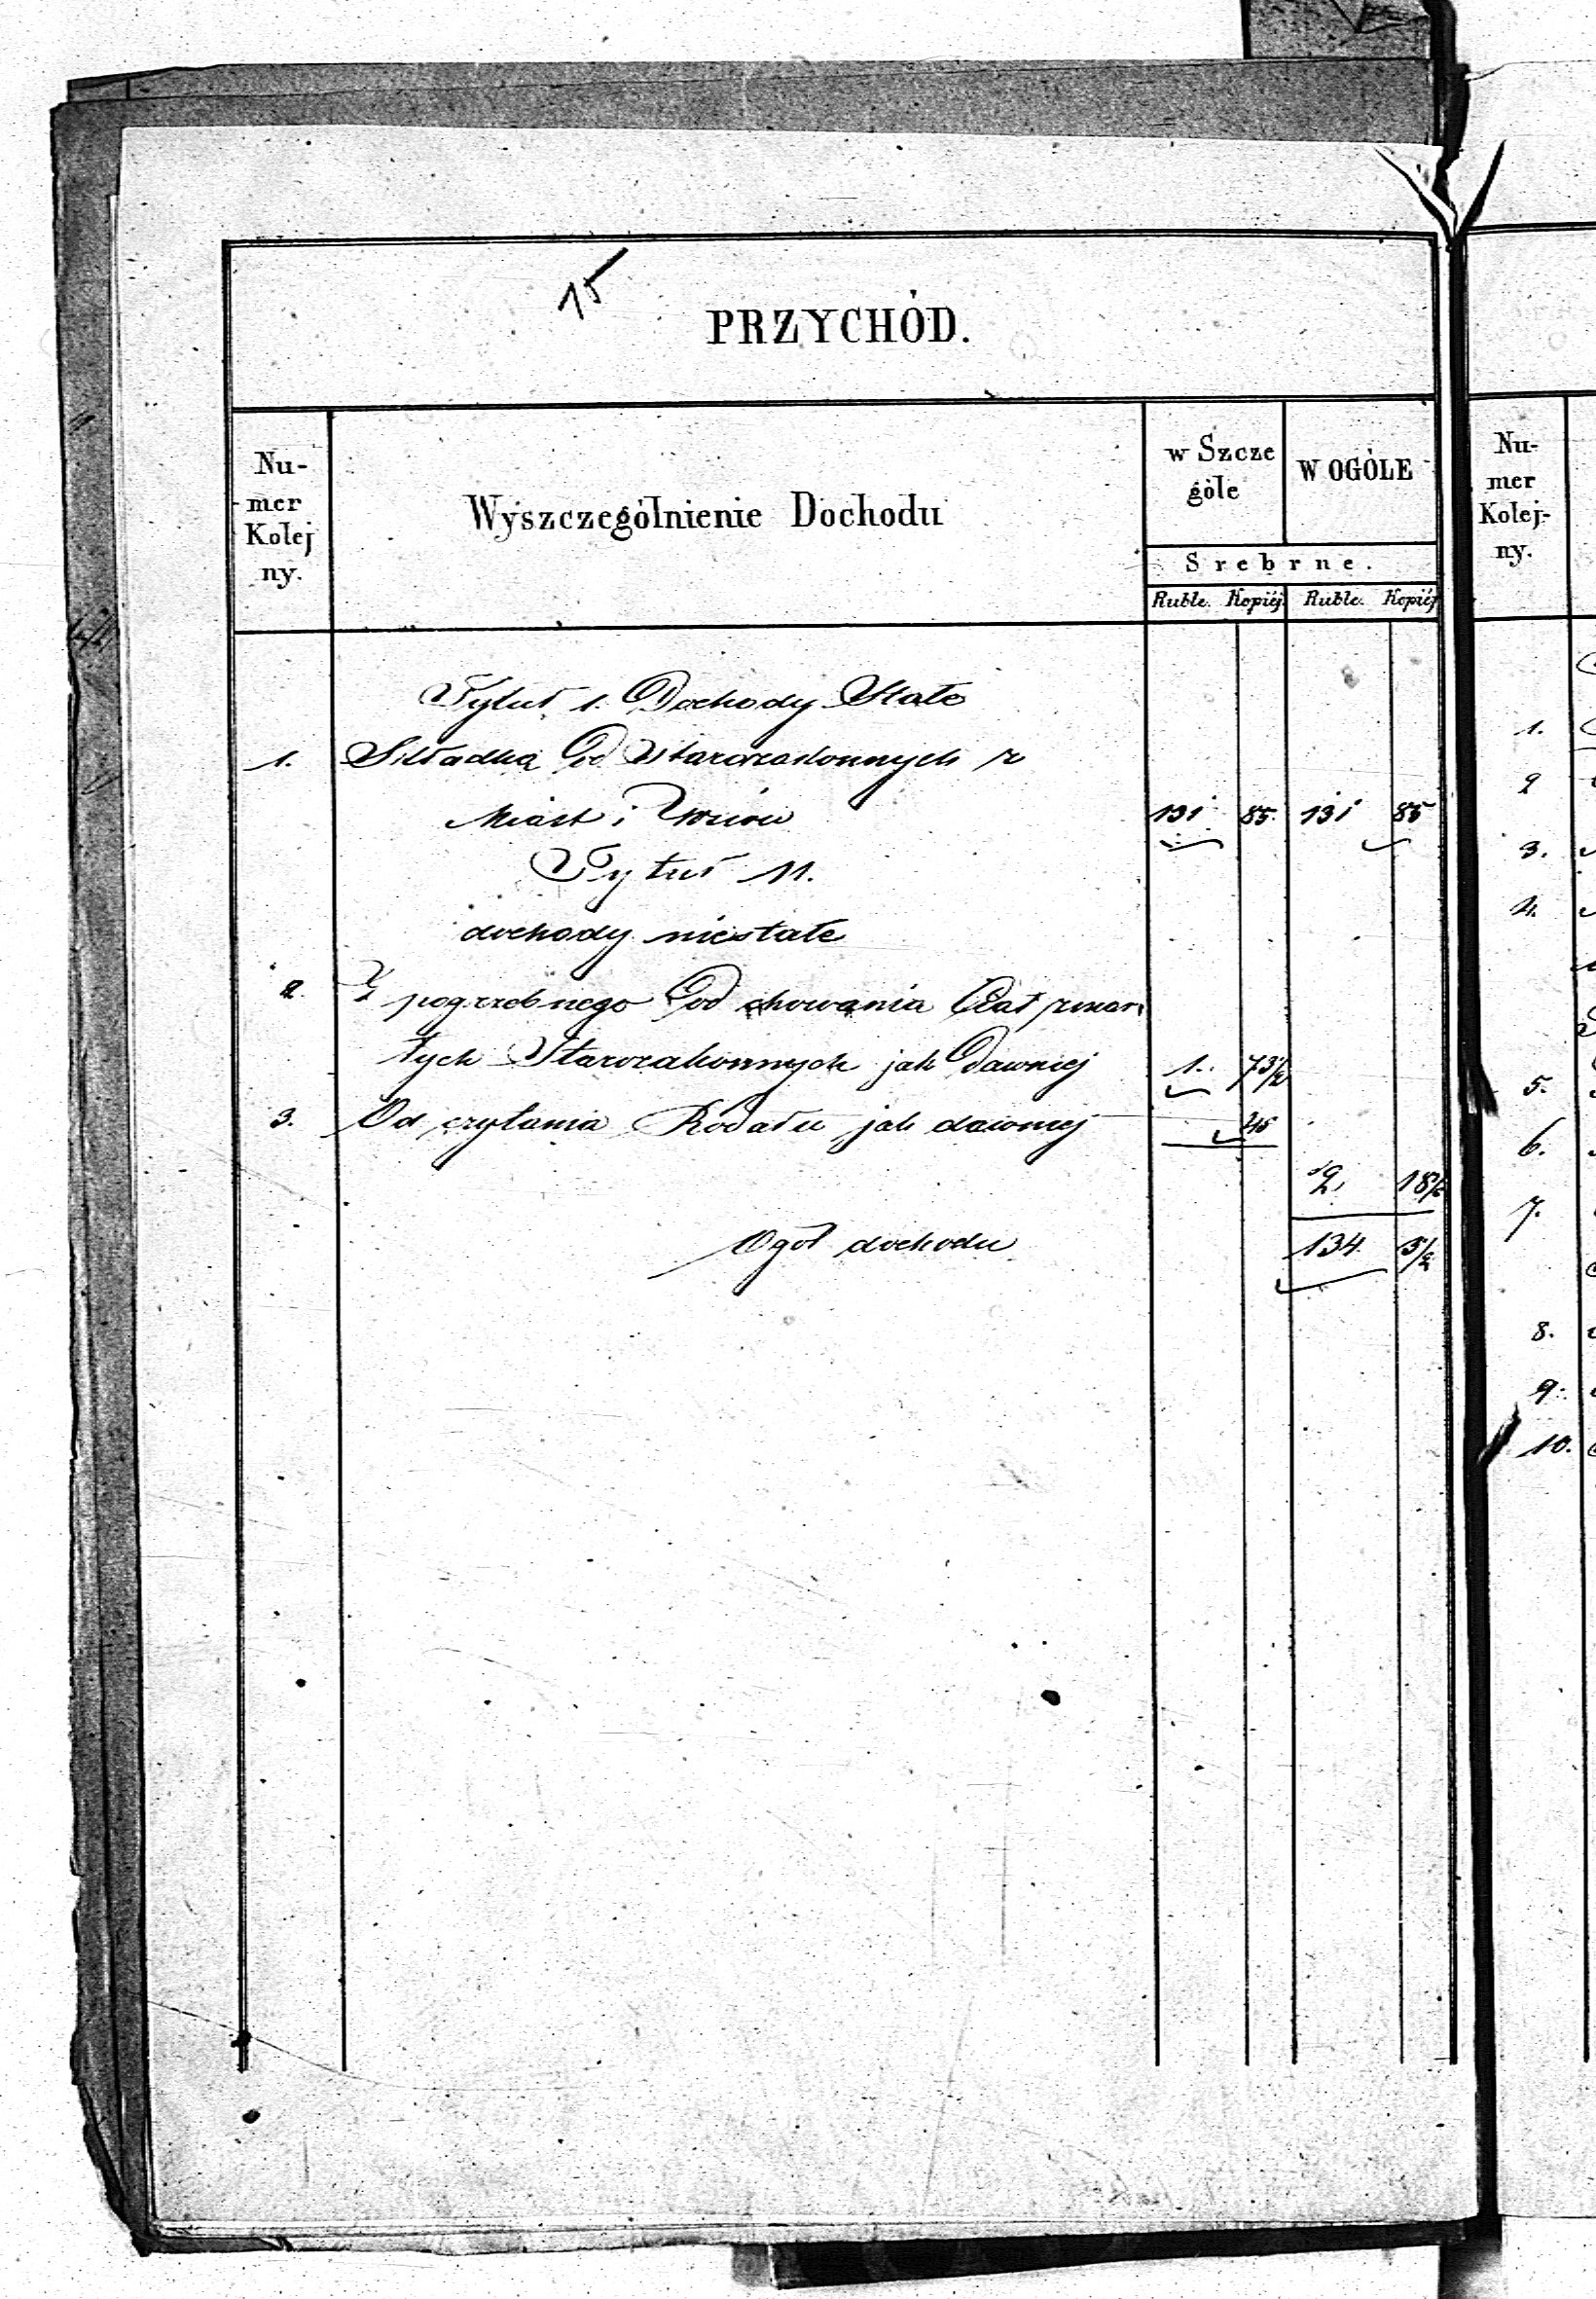 15
PRZYCHÓD.
Nu-
mer
Kolej
ny.
Wyszczególnienie Dochodu
w Szcze
góle
W OGÓLE
Srebrne.
Ruble. Kopiéj. Ruble. Kopiéj
Tytuł 1. Dochody Stałe
1. Składka Od Starozakonnych z
Miast i 131 85. 131 85
Tytuł 11.
dochody niestałe
2. Z pogrzebnego Od chowania Ciał zmar
łych Starozakonnych jak Dawniej 1. 73½
3. Od czytania Rodału jak dawniej 45
2 18½
Ogół dochodu 134. 3½
Nu-
mer
Kolej-
ny.
1.
2
3.
4.
5.
6.
7.
8.
9.
10.